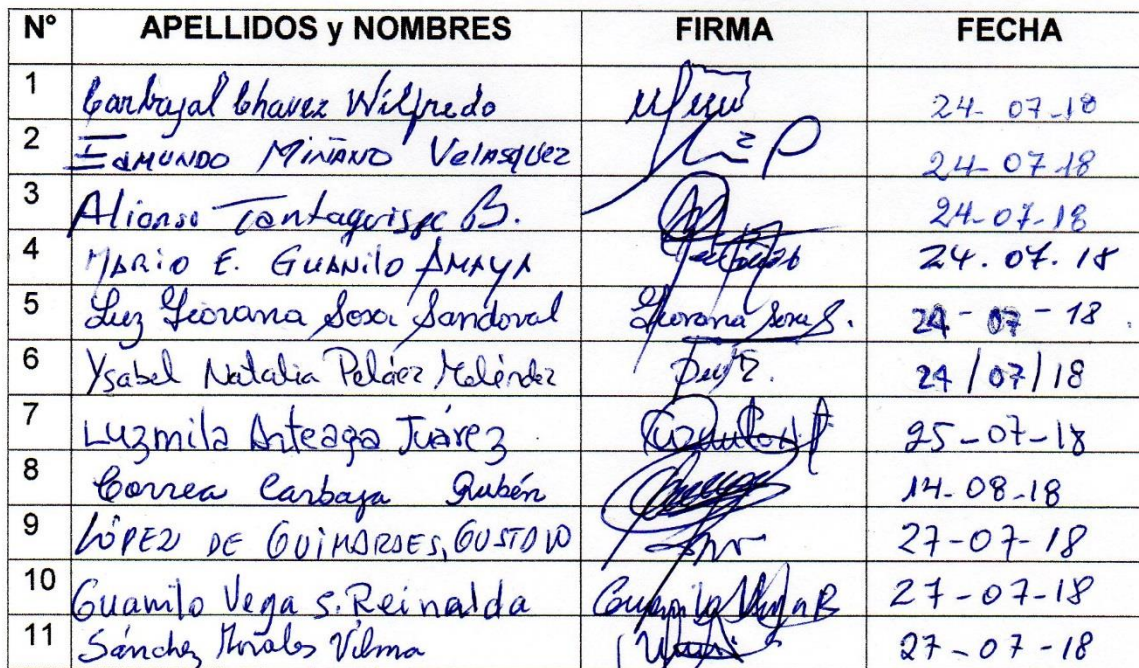 N° APELLIDOS y NOMBRES FIRMA FECHA
1 Carbajal Chavez Wilfredo 24-07-18
2 EDMUNDO MIÑANO VELASQUEZ 24-07-18
3 Alionso Tantaquispe B. 24-07-18
4 MARIO E. GUANILO AMAYA 24.07.18
5 Luz Geovana Sosa Sandoval Geovana Sosa S. 24-07-18
6 Ysabel Natalia Peláez Meléndez 24/07/18
7 Luzmila Arteaga Juárez 25-07-18
8 Correa Carbaja Rubén 14-08-18
9 LÓPEZ DE GUIMARAES, GUSTAVO 27-07-18
10 Guanilo Vega S. Reinalda Guanilo Vega R 27-07-18
11 Sánchez Morales Vilma 27-07-18